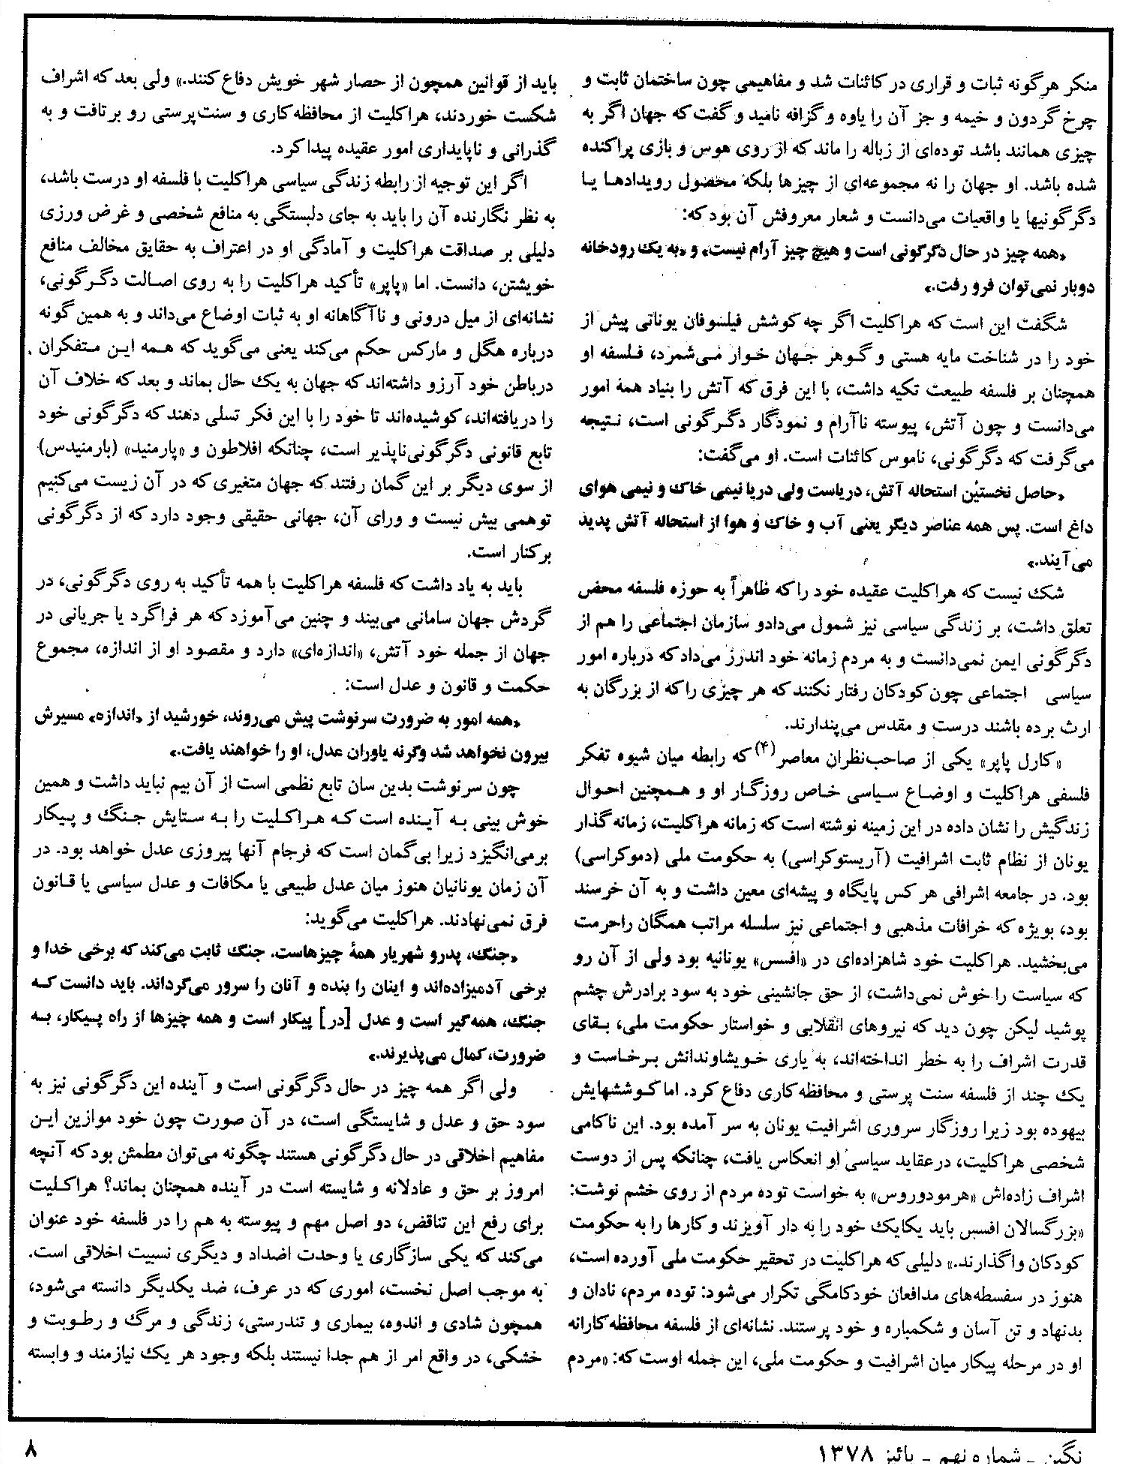 منکر هرگونه ثبات و قراری در کائنات شد و مفاهیمی چون ساختمان ثابت و
چرخ گردون و خیمه و جز آن را یاوه و گزافه نامید و گفت که جهان اگر به
چیزی همانند باشد توده‌ای از زباله را ماند که از روی هوس و بازی پراکنده
شده باشد. او جهان را نه مجموعه‌ای از چیزها بلکه محصول رویدادها یا
دگرگونیها یا واقعیات می‌دانست و شعار معروفش آن بود که:
«همه چیز در حال دگرگونی است و هیچ چیز آرام نیست» و «به یک رودخانه
دوبار نمی‌توان فرو رفت.»
شگفت این است که هراکلیت اگر چه کوشش فیلسوفان یوناتی پیش از
خود را در شناخت مایه هستی و گوهر جهان خوار می‌شمرد، فلسفه او
همچنان بر فلسفه طبیعت تکیه داشت، با این فرق که آتش را بنیاد همهٔ امور
می‌دانست و چون آتش، پیوسته ناآرام و نمودگار دگرگونی است، نتیجه
می‌گرفت که دگرگونی، ناموس کائنات است. او می‌گفت:
«حاصل نخستین استحاله آتش، دریاست ولی دریا نیمی خاک و نیمی هوای
داغ است. پس همه عناصر دیگر یعنی آب و خاک و هوا از استحاله آتش پدید
می‌آیند.»
شک نیست که هراکلیت عقیده خود را که ظاهراً به حوزه فلسفه محض
تعلق داشت، بر زندگی سیاسی نیز شمول می‌دادو سازمان اجتماعی را هم از
دگرگونی ایمن نمی‌دانست و به مردم زمانه خود اندرز می‌داد که درباره امور
سیاسی اجتماعی چون کودکان رفتار نکنند که هر چیزی را که از بزرگان به
ارث برده باشند درست و مقدس می‌پندارند.
«کارل پاپر» یکی از صاحب‌نظران معاصر(۴) که رابطه میان شیوه تفکر
فلسفی هراکلیت و اوضاع سیاسی خاص روزگار او و همچنین احوال
زندگیش را نشان داده در این زمینه نوشته است که زمانه هراکلیت، زمانه گذار
یونان از نظام ثابت اشرافیت (آریستوکراسی) به حکومت ملی (دموکراسی)
بود. در جامعه اشرافی هر کس پایگاه و پیشه‌ای معین داشت و به آن خرسند
بود، بویژه که خرافات مذهبی و اجتماعی نیز سلسله مراتب همگان راحرمت
می‌بخشید. هراکلیت خود شاهزاده‌ای در «افسس» یونانیه بود ولی از آن رو
که سیاست را خوش نمی‌داشت، از حق جانشینی خود به سود برادرش چشم
پوشید لیکن چون دید که نیروهای انقلابی و خواستار حکومت ملی، بقای
قدرت اشراف را به خطر انداخته‌اند، به یاری خویشاوندانش برخاست و
یک چند از فلسفه سنت پرستی و محافظه کاری دفاع کرد. اما کوششهایش
بیهوده بود زیرا روزگار سروری اشرافیت یونان به سر آمده بود. این ناکامی
شخصی هراکلیت، در عقاید سیاسی او انعکاس یافت، چنانکه پس از دوست
اشراف زاده‌اش «هرمودوروس» به خواست توده مردم از روی خشم نوشت:
«بزرگسالان افسس باید یکایک خود را به دار آویزند و کارها را به حکومت
کودکان واگذارند.» دلیلی که هراکلیت در تحقیر حکومت ملی آورده است،
هنوز در سفسطه‌های مدافعان خودکامگی تکرار می‌شود: توده مردم، نادان و
بدنهاد و تن آسان و شکمباره و خود پرستند. نشانه‌ای از فلسفه محافظه‌کارانه
او در مرحله پیکار میان اشرافیت و حکومت ملی، این جمله اوست که: «مردم
باید از قوانین همچون از حصار شهر خویش دفاع کنند.» ولی بعد که اشراف
شکست خوردند، هراکلیت از محافظه‌کاری و سنت‌پرستی رو برتافت و به
گذرانی و ناپایداری امور عقیده پیدا کرد.
اگر این توجیه از رابطه زندگی سیاسی هراکلیت با فلسفه او درست باشد،
به نظر نگارنده آن را باید به جای دلبستگی به منافع شخصی و غرض ورزی
دلیلی بر صداقت هراکلیت و آمادگی او در اعتراف به حقایق مخالف منافع
خویشتن، دانست. اما «پاپر» تأکید هراکلیت را به روی اصالت دگرگونی،
نشانه‌ای از میل درونی و ناآگاهانه او به ثبات اوضاع می‌داند و به همین گونه
درباره هگل و مارکس حکم می‌کند یعنی می‌گوید که همه این متفکران
درباطن خود آرزو داشته‌اند که جهان به یک حال بماند و بعد که خلاف آن
را دریافته‌اند، کوشیده‌اند تا خود را با این فکر تسلی دهند که دگرگونی خود
تابع قانونی دگرگونی‌ناپذیر است، چنانکه افلاطون و «پارمنید» (بارمنیدس)
از سوی دیگر بر این گمان رفتند که جهان متغیری که در آن زیست می‌کنیم
توهمی بیش نیست و ورای آن، جهانی حقیقی وجود دارد که از دگرگونی
برکنار است.
باید به یاد داشت که فلسفه هراکلیت با همه تأکید به روی دگرگونی، در
گردش جهان سامانی می‌بیند و چنین می‌آموزد که هر فراگرد یا جریانی در
جهان از جمله خود آتش، «اندازه‌ای» دارد و مقصود او از اندازه، مجموع
حکمت و قانون و عدل است:
«همه امور به ضرورت سرنوشت پیش می‌روند، خورشید از «اندازه» مسیرش
بیرون نخواهد شد وگرنه یاوران عدل، او را خواهند یافت.»
چون سرنوشت بدین سان تابع نظمی است از آن بیم نباید داشت و همین
خوش بینی به آینده است که هراکلیت را به ستایش جنگ و پیکار
برمی‌انگیزد زیرا بی‌گمان است که فرجام آنها پیروزی عدل خواهد بود. در
آن زمان یونانیان هنوز میان عدل طبیعی یا مکافات و عدل سیاسی یا قانون
فرق نمی‌نهادند. هراکلیت می‌گوید:
«جنگ، پدرو شهریار همهٔ چیزهاست. جنگ ثابت می‌کند که برخی خدا و
برخی آدمیزاده‌اند و اینان را بنده و آنان را سرور می‌گرداند. باید دانست که
جنگ، همه‌گیر است و عدل [در] پیکار است و همه چیزها از راه پیکار، به
ضرورت، کمال می‌پذیرند.»
ولی اگر همه چیز در حال دگرگونی است و آینده این دگرگونی نیز به
سود حق و عدل و شایستگی است، در آن صورت چون خود موازین این
مفاهیم اخلاقی در حال دگرگونی هستند چگونه می‌توان مطمئن بود که آنچه
امروز بر حق و عادلانه و شایسته است در آینده همچنان بماند؟ هراکلیت
برای رفع این تناقض، دو اصل مهم و پیوسته به هم را در فلسفه خود عنوان
می‌کند که یکی سازگاری یا وحدت اضداد و دیگری نسبیت اخلاقی است.
به موجب اصل نخست، اموری که در عرف، ضد یکدیگر دانسته می‌شود،
همچون شادی و اندوه، بیماری و تندرستی، زندگی و مرگ و رطوبت و
خشکی، در واقع امر از هم جدا نیستند بلکه وجود هر یک نیازمند و وابسته
نگین - شماره نهم - پائیز ۱۳۷۸
۸